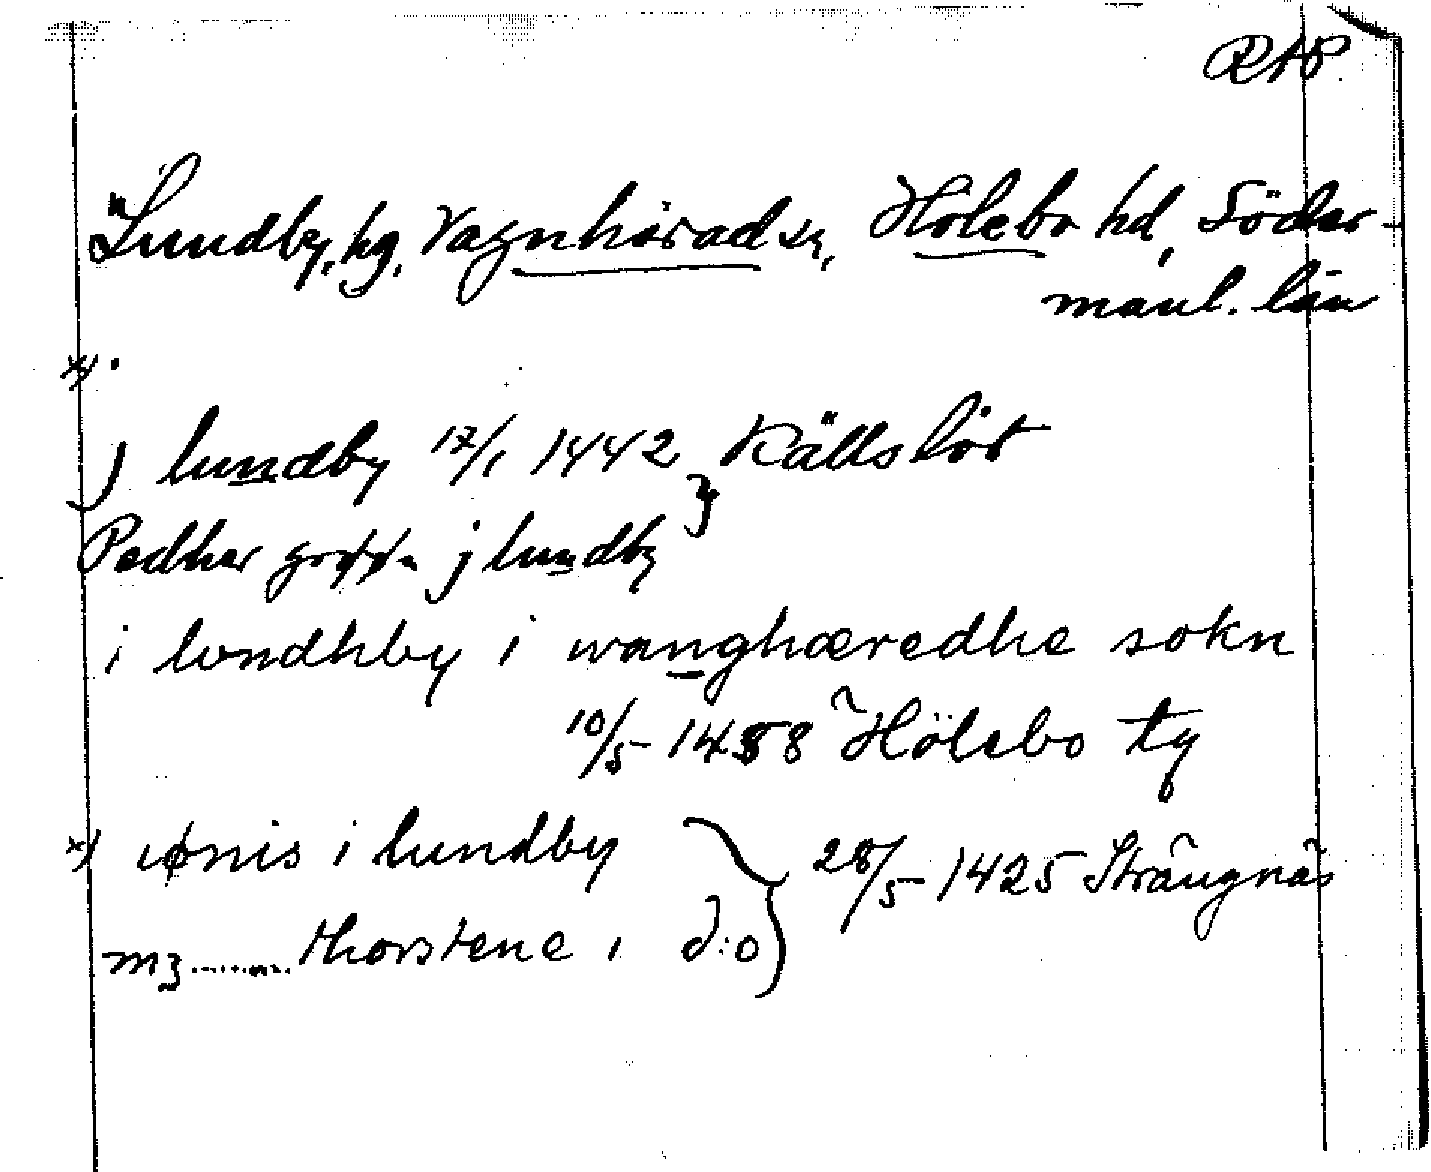 RAP
Lundby, hg, Vagnhärad sn, Hölebo hd, Söder-
manl. län
x).
j lundby 17/1 1442 } Källslöt
Pedher j lundby
i lvndhby i wanghæredhe sokn
10/5 1458 Hölebo tg
x) iønis i lundby } 28/5 1425 Strängnäs
mz ........ thorstene i d:o